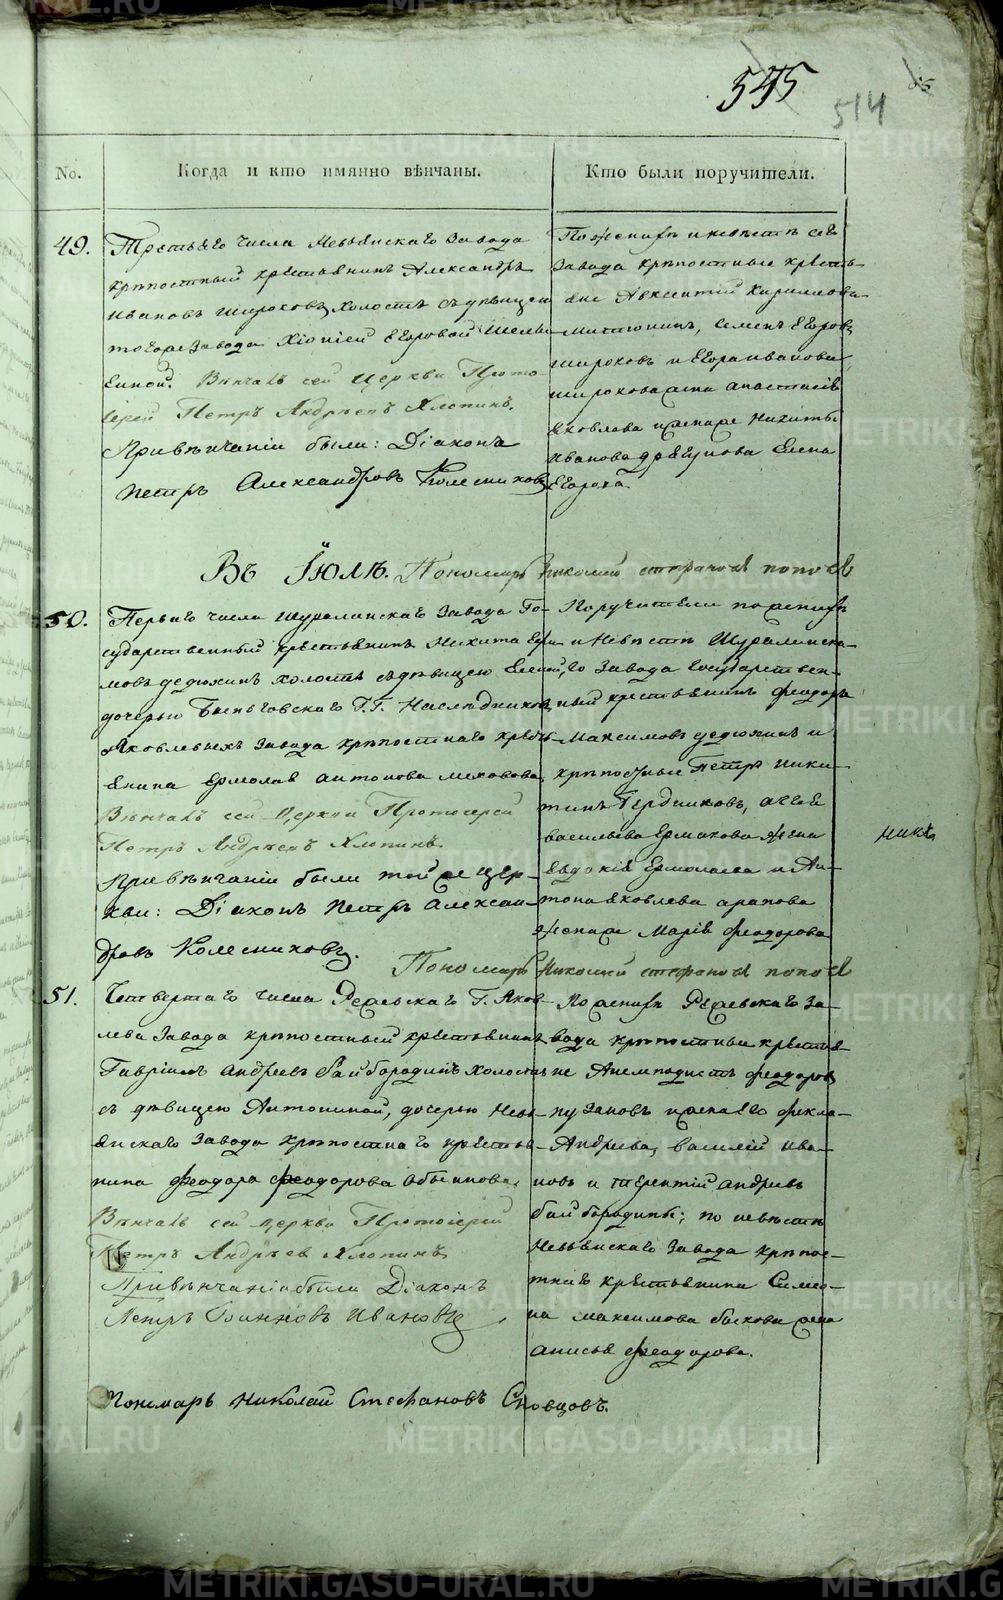 545
514
No.
Когда и кто имянно вѣнчаны.
Кто были поручители.
49.
Третьяго числа Невьянскаго Завода
крѣпостный крестьянинъ Александръ
Ивановъ Широковъ холостъ съ дѣвицею
тогоже завода Хіоніей Егоровой
Вѣнчалъ сей Церкви Прото-
іерей Петръ Андреевъ Хлопинъ.
При вѣнчаніи были: Діаконъ
Петръ Александровъ Колесниковъ
По женихѣ и невѣстѣ сего
Завода крѣпостные кресть-
яне Авксентій Кирилловъ
Митюнинъ, Семенъ Егоровъ
Широковъ и Егора Иванова
Широкова жена Анастасія
Яковлева и жена Никиты
Иванова Елена
Егорова.
Въ Іюлѣ.
Пономарь Николай Стефановъ Поповъ
50.
Перваго числа Шуралинскаго Завода Го-
сударственный крестьянинъ Никита Ефи-
мовъ Дедюхинъ холостъ съ дѣвицею Еленой,
дочерью Быньговскаго Г.Г. Наслѣдниковъ
Яковлевыхъ Завода крѣпостнаго кресть-
янина Ермолая Антонова Меховова
Вѣнчалъ сей Церкви Протоіерей
Петръ Андреевъ Хлопинъ
При вѣнчаніи были тойже цер-
кви: Діаконъ Петръ Алексан-
дровъ Колесниковъ.
Пономарь Николай Стефановъ Поповъ
Поручители по женихѣ
и Невѣстѣ Шуралинска-
го Завода Государствен-
ный крестьянинъ Феодоръ
Максимовъ Дедюхинъ и
крѣпостные Петръ Ники-
тинъ Гердниковъ,
Васильева Ермакова жена
Евдокія Ермолаева и Ан-
тона Яковлева Арапова
жена Марія Феодорова
51.
Четвертаго числа Режевскаго Г. Яков-
лева Завода крѣпостный крестьянинъ
Гавріилъ Андреевъ Байбородинъ холостъ
съ дѣвицею Антониной, дочерью Невь-
янскаго Завода крѣпостнаго крестья-
нина Феодора Феодорова
Вѣнчалъ сей церкви Протоіерей
Петръ Андреевъ Хлопинъ
При вѣнчаніи были Діаконъ
Петръ Иванновъ Ивановъ
Пономарь Николай Стефановъ Словцовъ.
По женихѣ Режевскаго За-
вода крѣпостные крестья-
не Анемподистъ Феодоровъ
Пузановъ и жена его Фекла
Андреева, Василій Ива-
новъ и Терентій Андреевъ
Байбородины; по невѣстѣ
Невьянскаго Завода крѣпос-
тнаго крестьянина Симео-
на Максимова Баскова жена
Анисья Феодорова.
METRIKI.GASO-URAL.RU